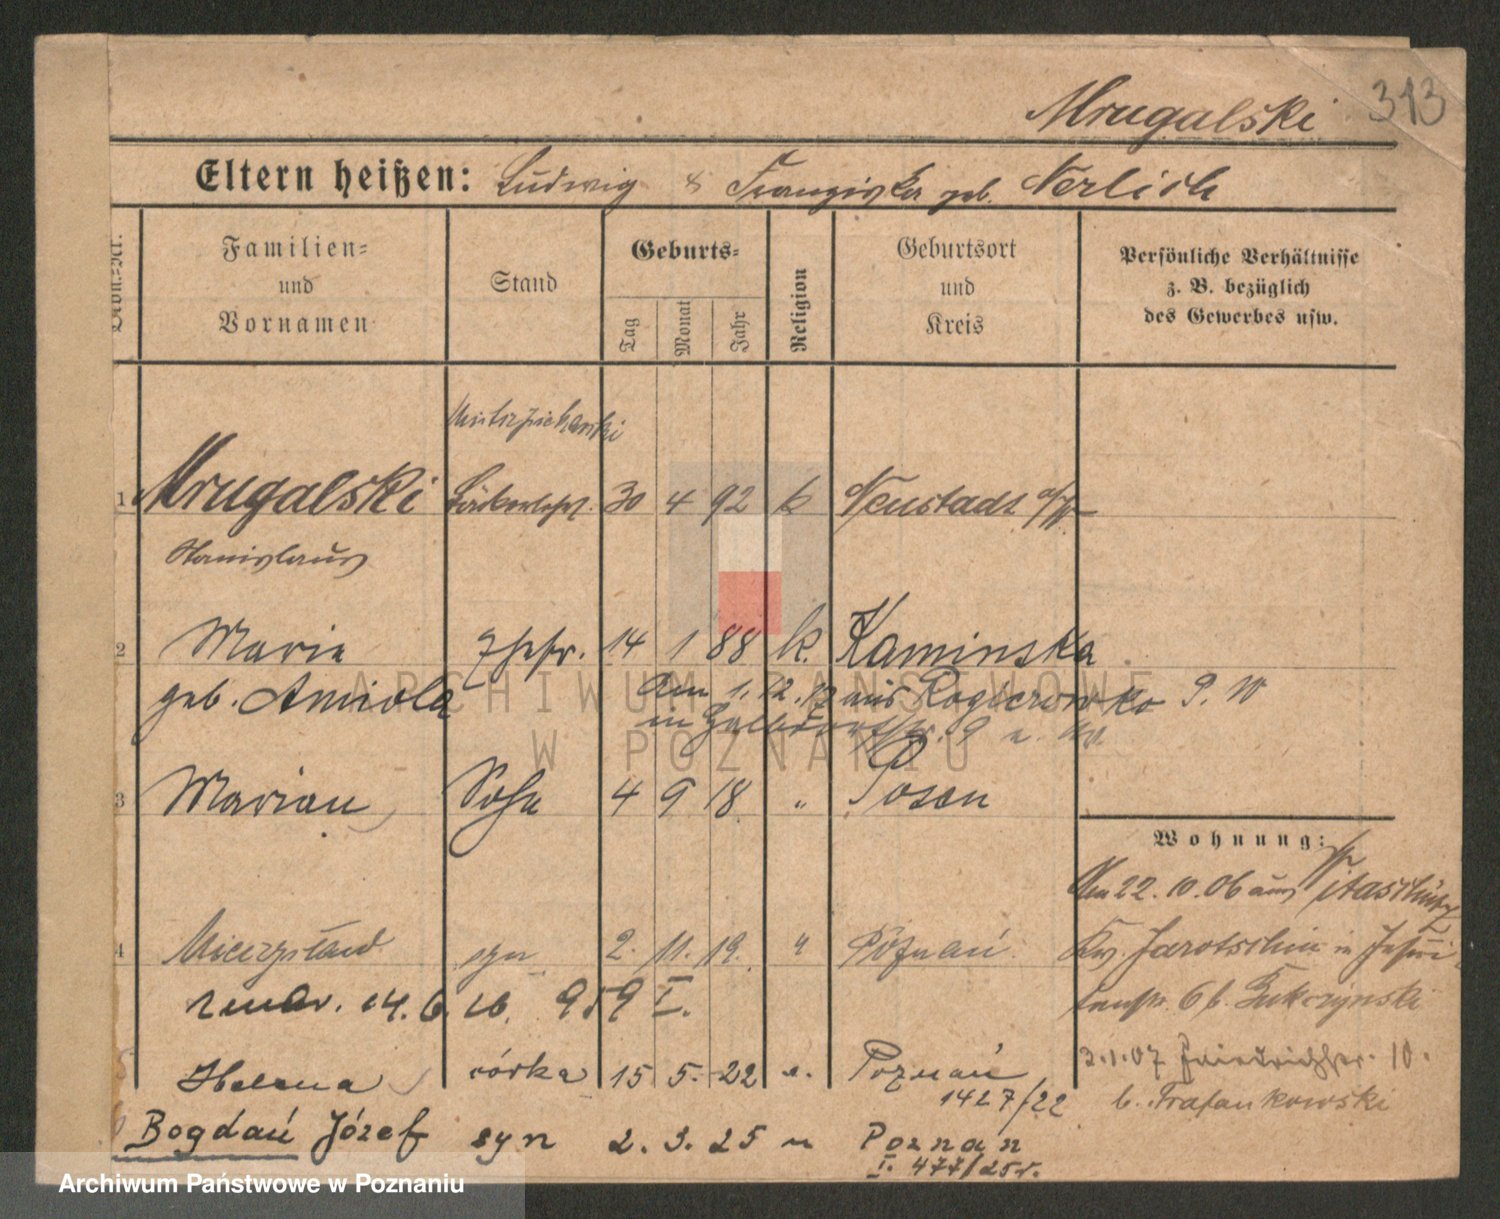 Mrugalski 313
Eltern heißen: Ludwig & Franziska geb. Nerlich
Familien= und Vornamen
Stand
Geburts=
Tag
Monat
Jahr
Religion
Geburtsort und Kreis
Persönliche Verhältnisse z. B. bezüglich des Gewerbes usw.
1 Mrugalski 30 4 92 k Neustadt a/W
Stanislaus
2 Marie Ehefr. 14 1 88 k. Kaminska
geb. Amiola am 1. 12. 17 aus Rogierowko P. W
in
3 Marian Sohn 4 9 18 " Posen
Wohnung:
Am 22. 10. 06 aus
4 Mieczysław syn 2. 11. 19. " Poznań
Kr. Jarotschin in Jesui-
zmar. 14. 6. 959 I.
tenstr. 6 b.
Helena córka 15 5. 22 Poznań
1427/22
3.1.07 Friedrichstr. 10.
b. Fratankowski
Bogdań Józef syn 2. 3. 25 Poznań
I. 477/25r.
ARCHIWUM PAŃSTWOWE
W POZNANIU
Archiwum Państwowe w Poznaniu